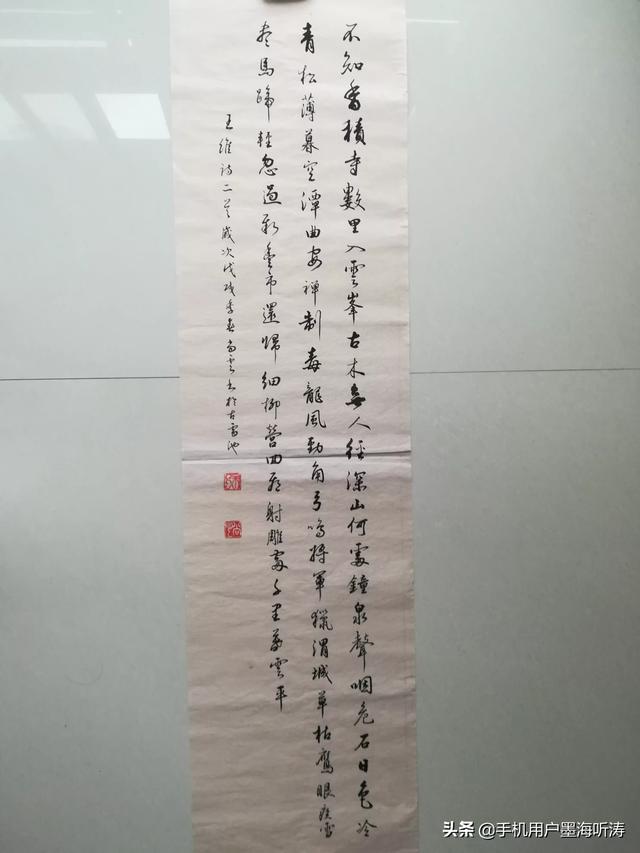 不知香積寺數里入雲峯古木無人徑深山何處鐘泉聲咽危石日色冷
青松薄暮空潭曲安禪制毒龍風勁角弓鳴將軍獵渭城草枯鷹眼疾雪
盡馬蹄輕忽過新豐市還歸細柳營回看射雕處千里暮雲平
王維詩二首歲次戊戌季春雲書於古雷池
头条 @手机用户墨海听涛